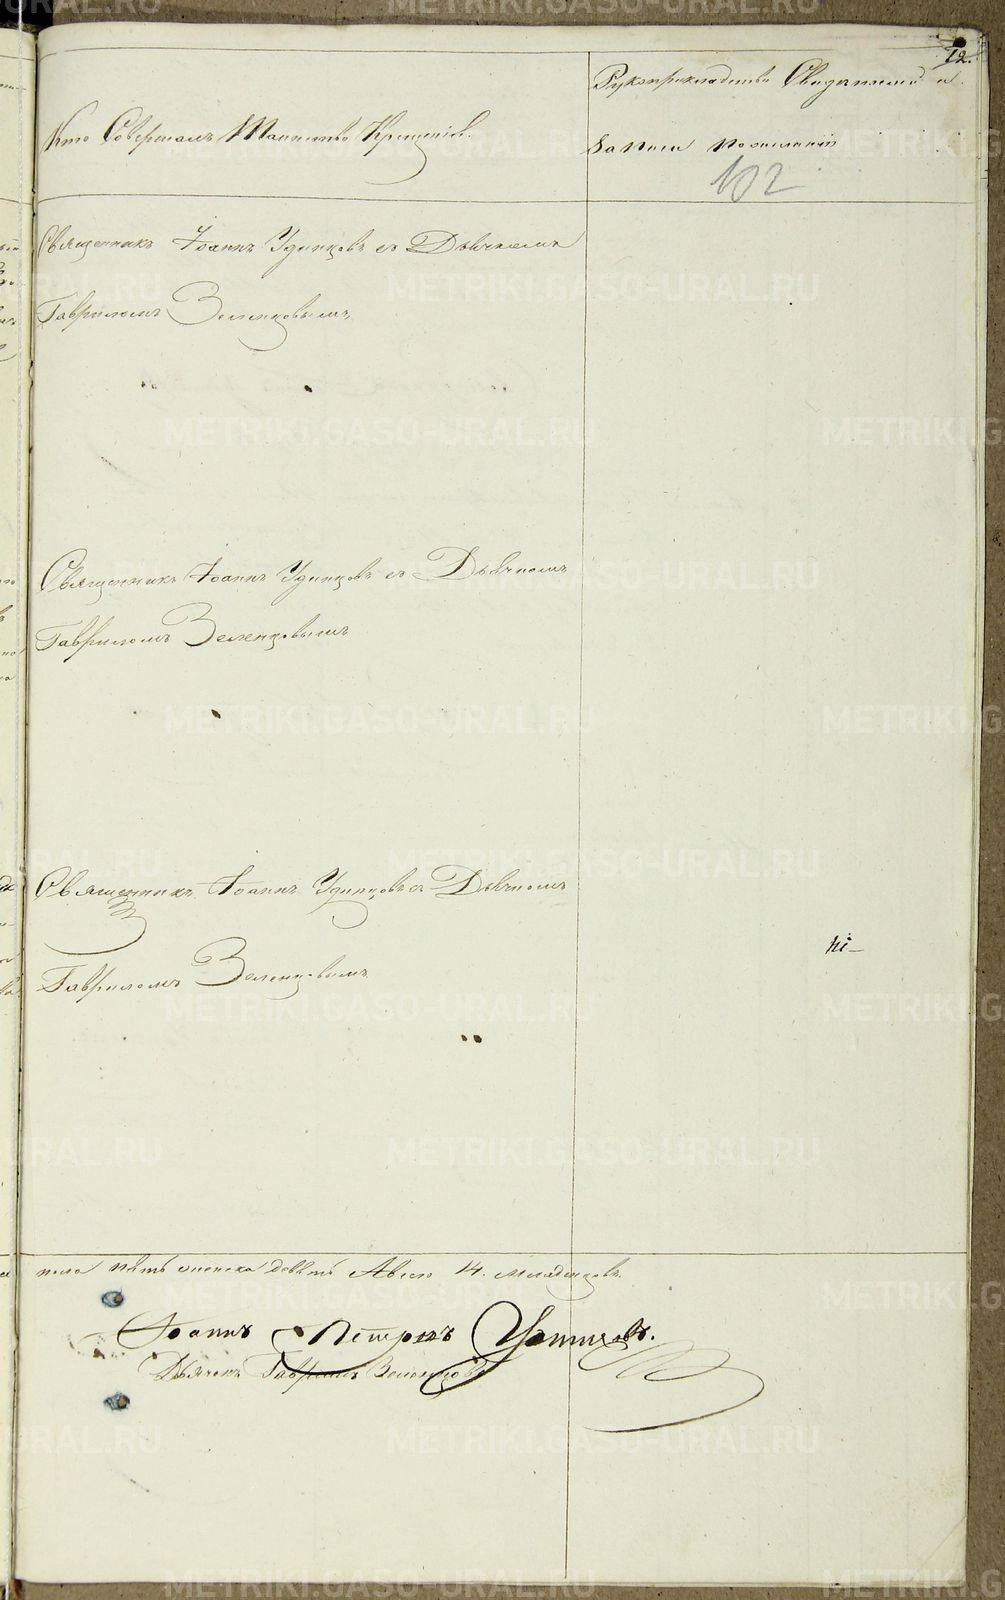 12.
Кто Совершалъ Таинство Крещенія.
Рукоприкладство Свидѣтелей
записи по желанію
102
Священникъ Іоаннъ Удинцовъ съ Дьячкомъ
Гавриломъ Зеленцовымъ
Священникъ Іоаннъ Удинцовъ съ Дьячкомъ
Гавриломъ Зеленцовымъ
Священникъ Іоаннъ Удинцовъ съ Дьячкомъ
Гавриломъ Зеленцовымъ
пола пять женска девять Всего 14. младенцовъ.
Іоаннъ Петровъ Удинцовъ.
Дьячекъ Гавриилъ Зеленцовъ
METRIKI.GASO-URAL.RU